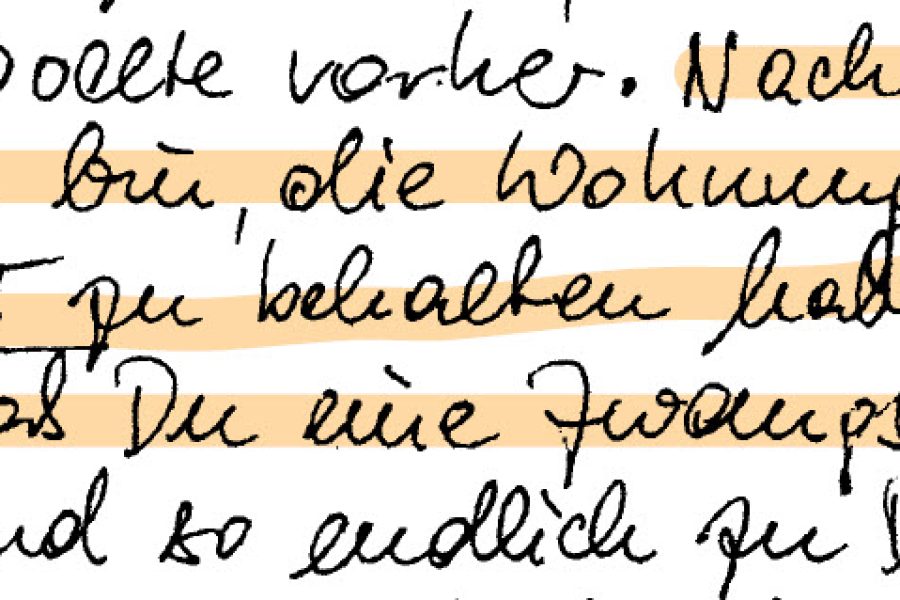 wollte vorher. Nach
bin, die Wohnung
zu behalten hat
daß Du eine Zwangs
und so endlich zu D